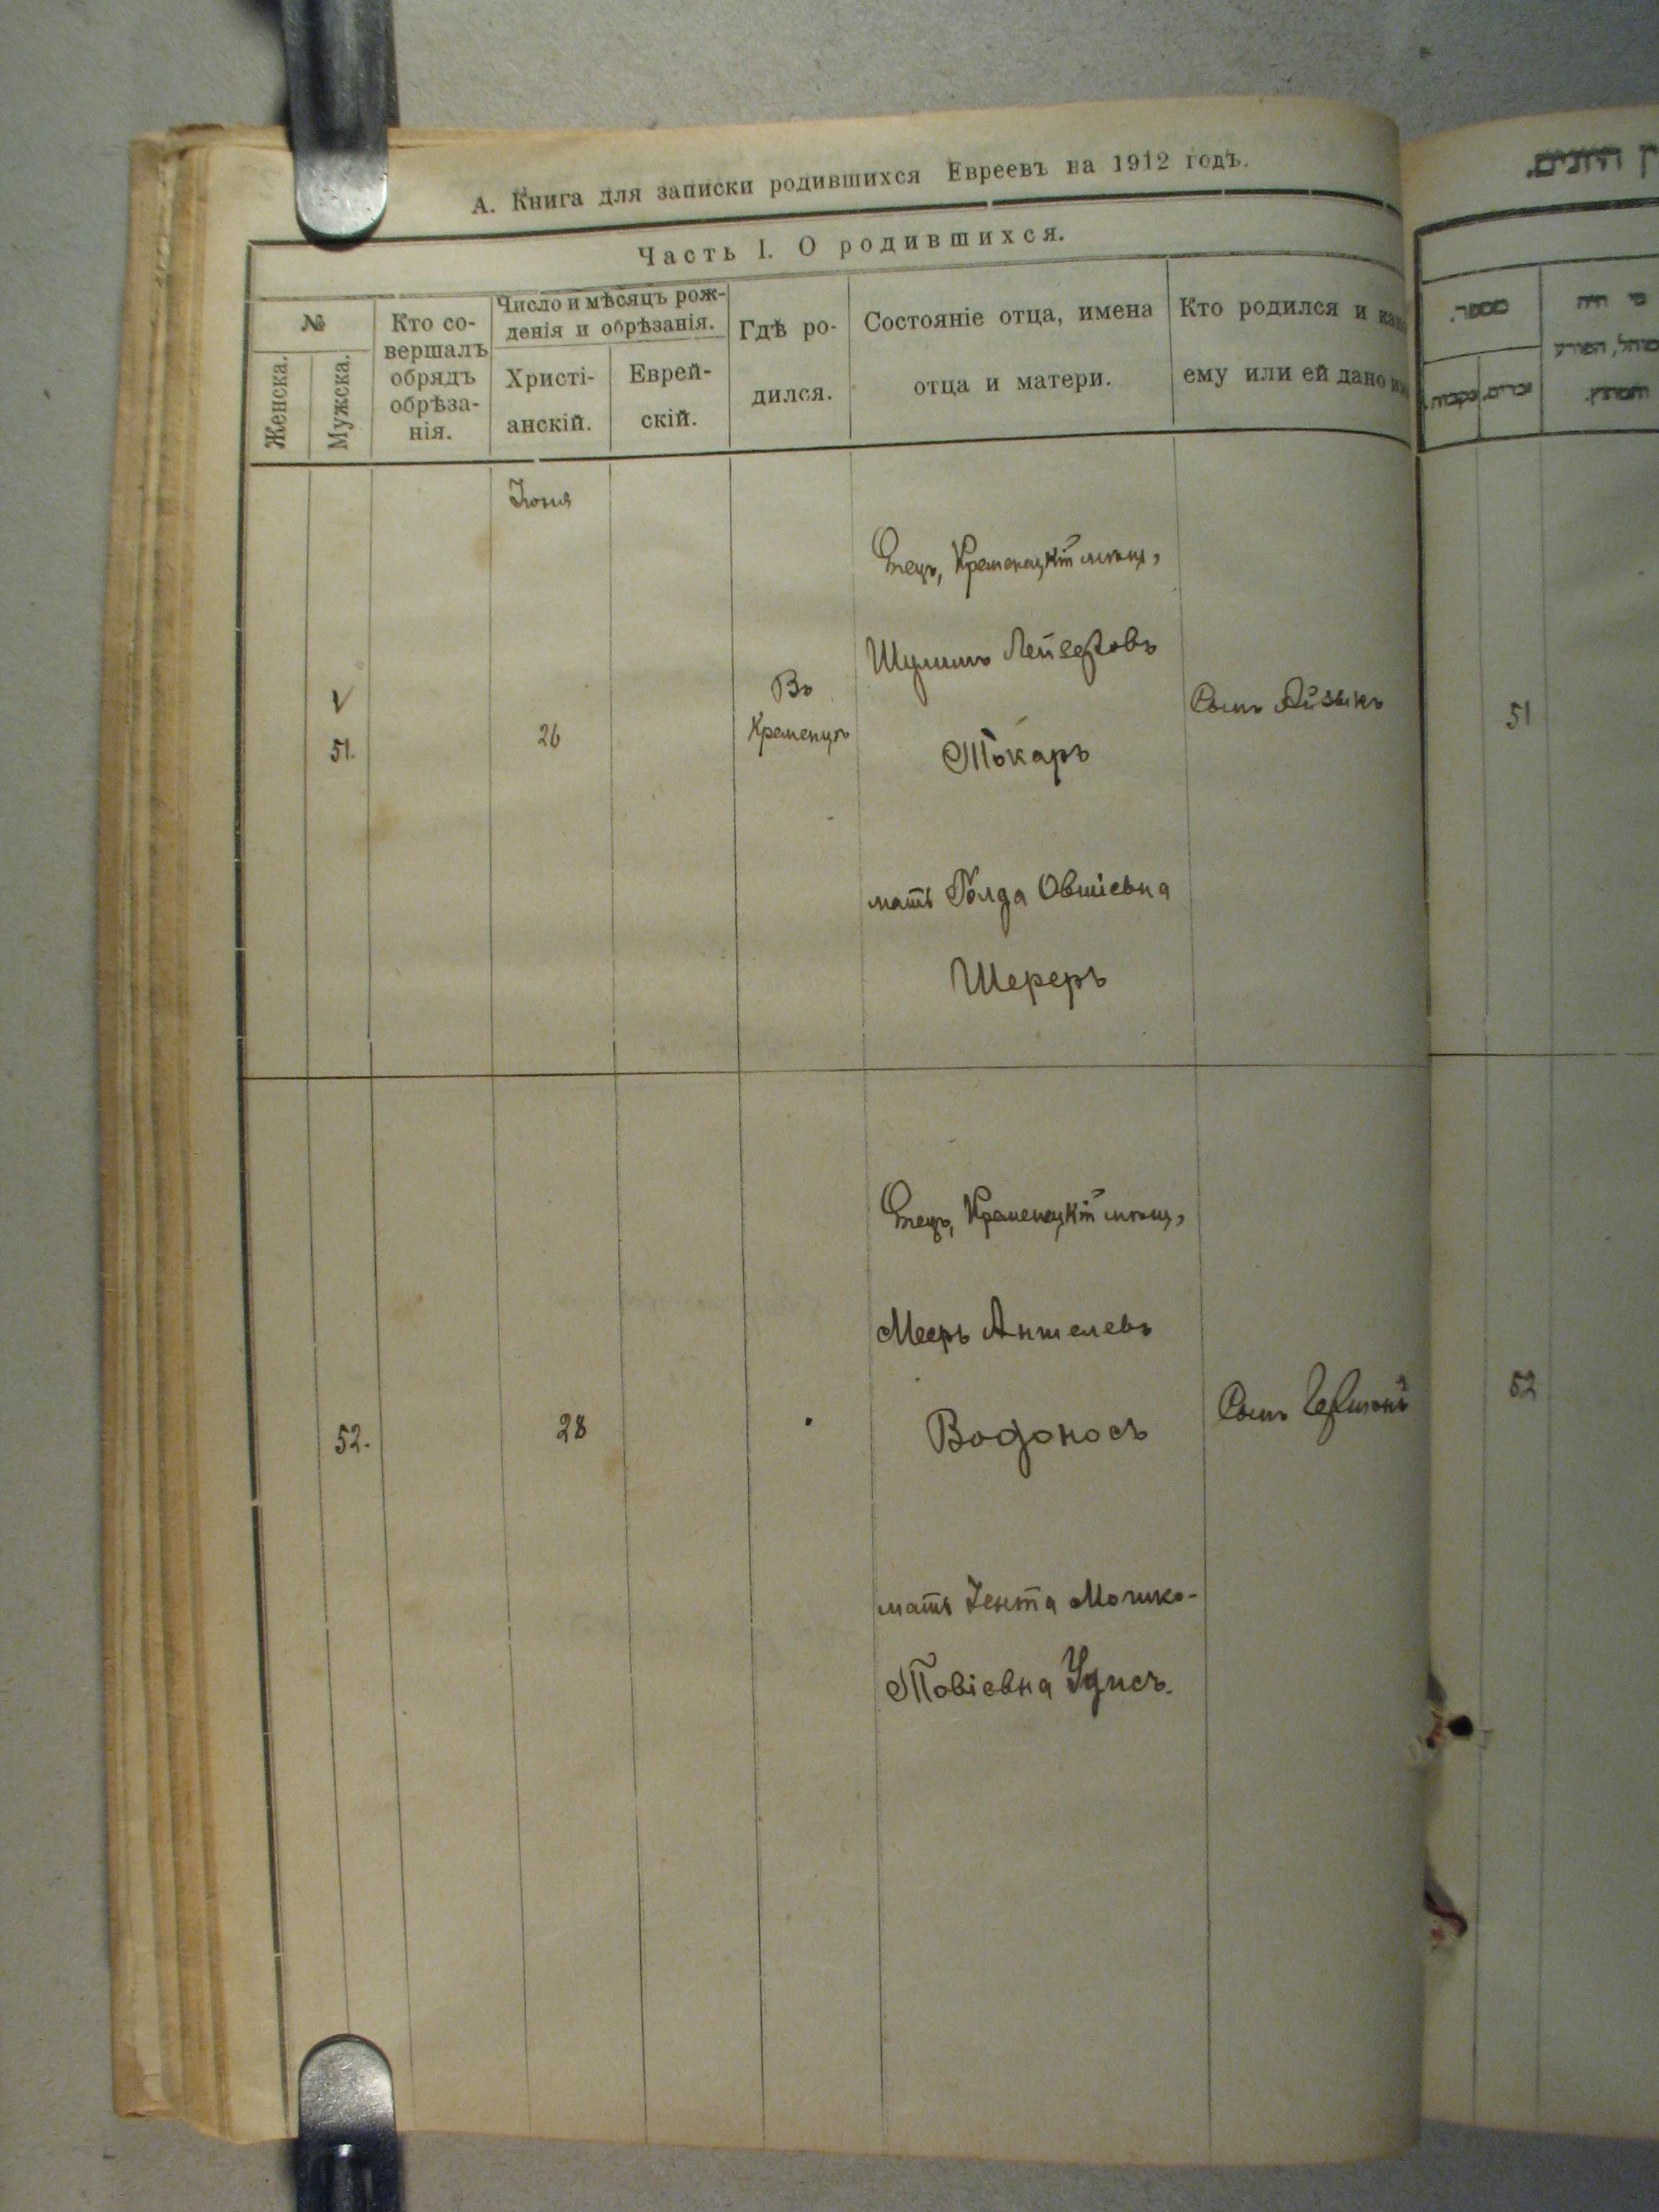 А. Книга для записки родившихся Евреевъ на 1912 годъ.
Часть I. О родившихся.
№
Женска.
Мужска.
Кто со-
вершалъ
обрядъ
обрѣза-
нія.
Число и мѣсяцъ рож-
денія и обрѣзанія.
Христі-
анскій.
Еврей-
скій.
Гдѣ ро-
дился.
Состояніе отца, имена
отца и матери.
Кто родился и
ему или ей дано
Іюня
V
51.
26
Въ
Кременцѣ
Отецъ, Кременецкій мѣщ,
Шулимъ Лейзеровъ
Токарь
мать Голда Овшіевна
Шереръ
Сынъ Айзыкъ
52.
28
Отецъ, Кременецкій мѣщ,
Мееръ Аншелевъ
Водоносъ
мать Іента Мошко-
Товіевна Удисъ.
Сынъ Гершонъ
מספר.
זכרים.
נקבות.
51
52